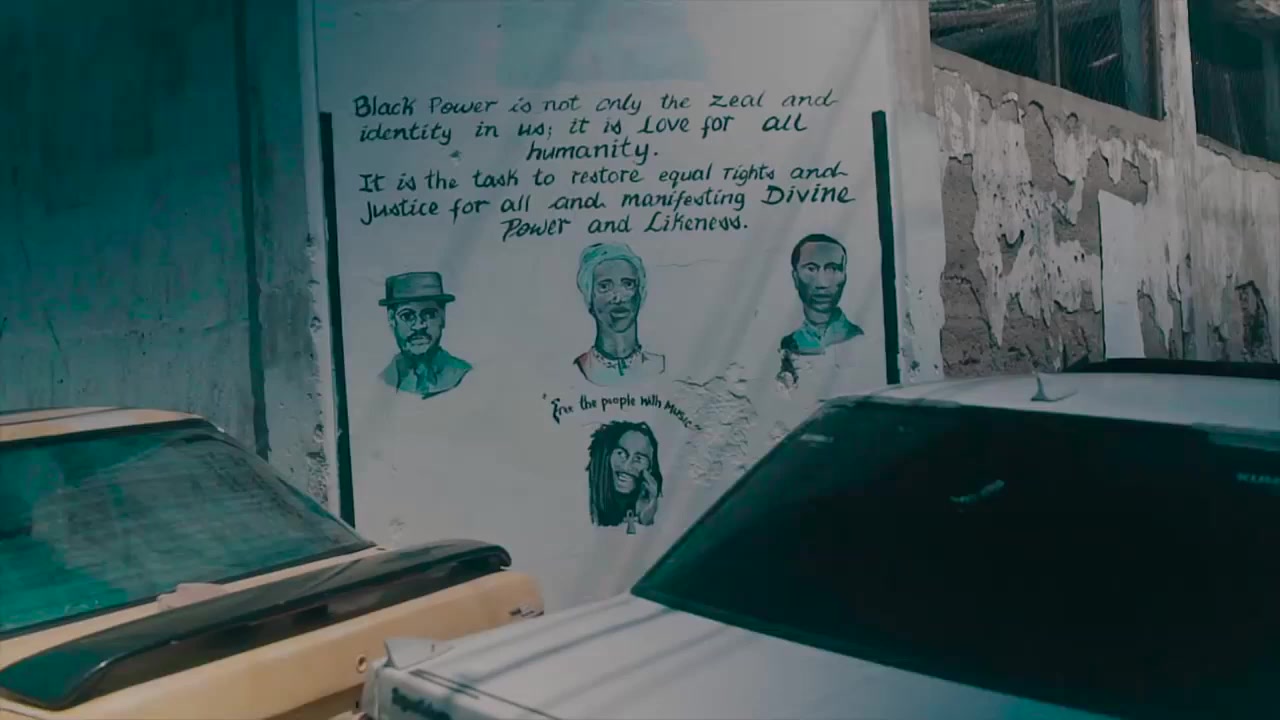 Black Power is not only the zeal and
identity in us; it is Love for all
humanity.
It is the task to restore equal rights and
Justice for all and manifesting Divine
Power and Likeness.
"Free the people with Music